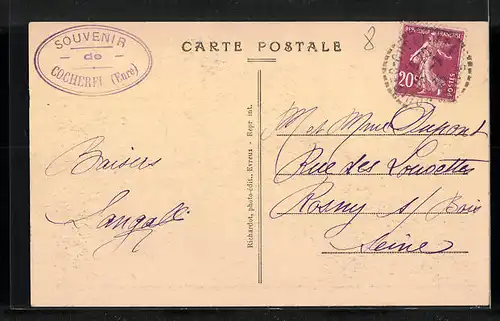 SOUVENIR
de
COCHEREL (Eure)
CARTE POSTALE
8
REPUBLIQUE FRANCAISE
20c
POSTES
Baisers
Richardot, photo-édit., Evreux - Repr. int.
M et Mme Dupont
Rue des
Rosny s/ Bois
Seine